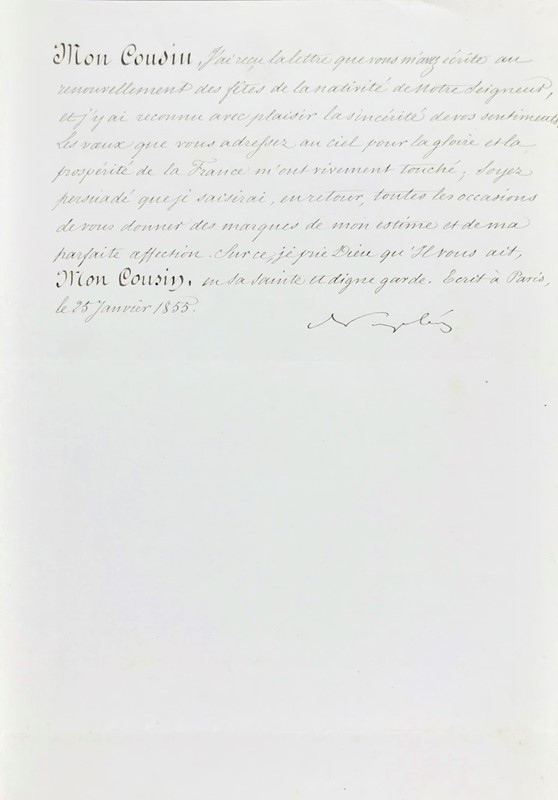 Mon Cousin, J'ai reçu la lettre que vous m'avez écrite au
renouvellement des fêtes de la nativité de Notre Seigneur,
et j'y ai reconnu avec plaisir la sincérité de vos sentiments.
Les vœux que vous adressez au ciel pour la gloire et la
prospérité de la France m'ont vivement touché; Soyez
persuadé que je saisirai, en retour, toutes les occasions
de vous donner des marques de mon estime et de ma
parfaite affection. Sur ce, je prie Dieu qu'Il vous ait,
Mon Cousin, en sa sainte et digne garde. Ecrit à Paris,
le 25 Janvier 1855.
Napoléon